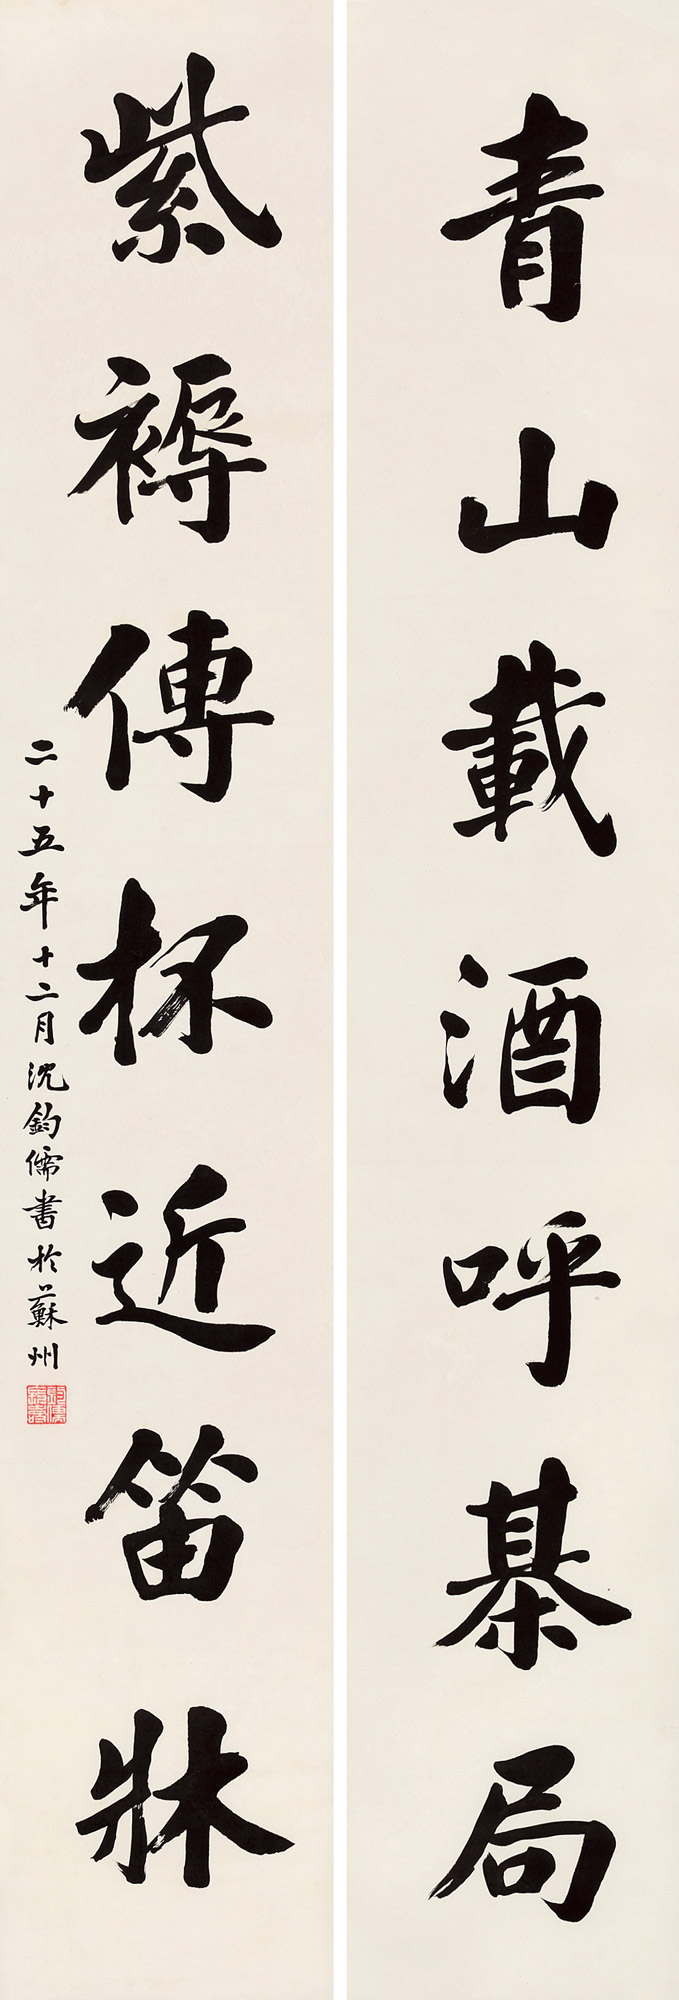 青山載酒呼棊局
紫褥傳杯近笛牀
二十五年十二月沈鈞儒書於蘇州